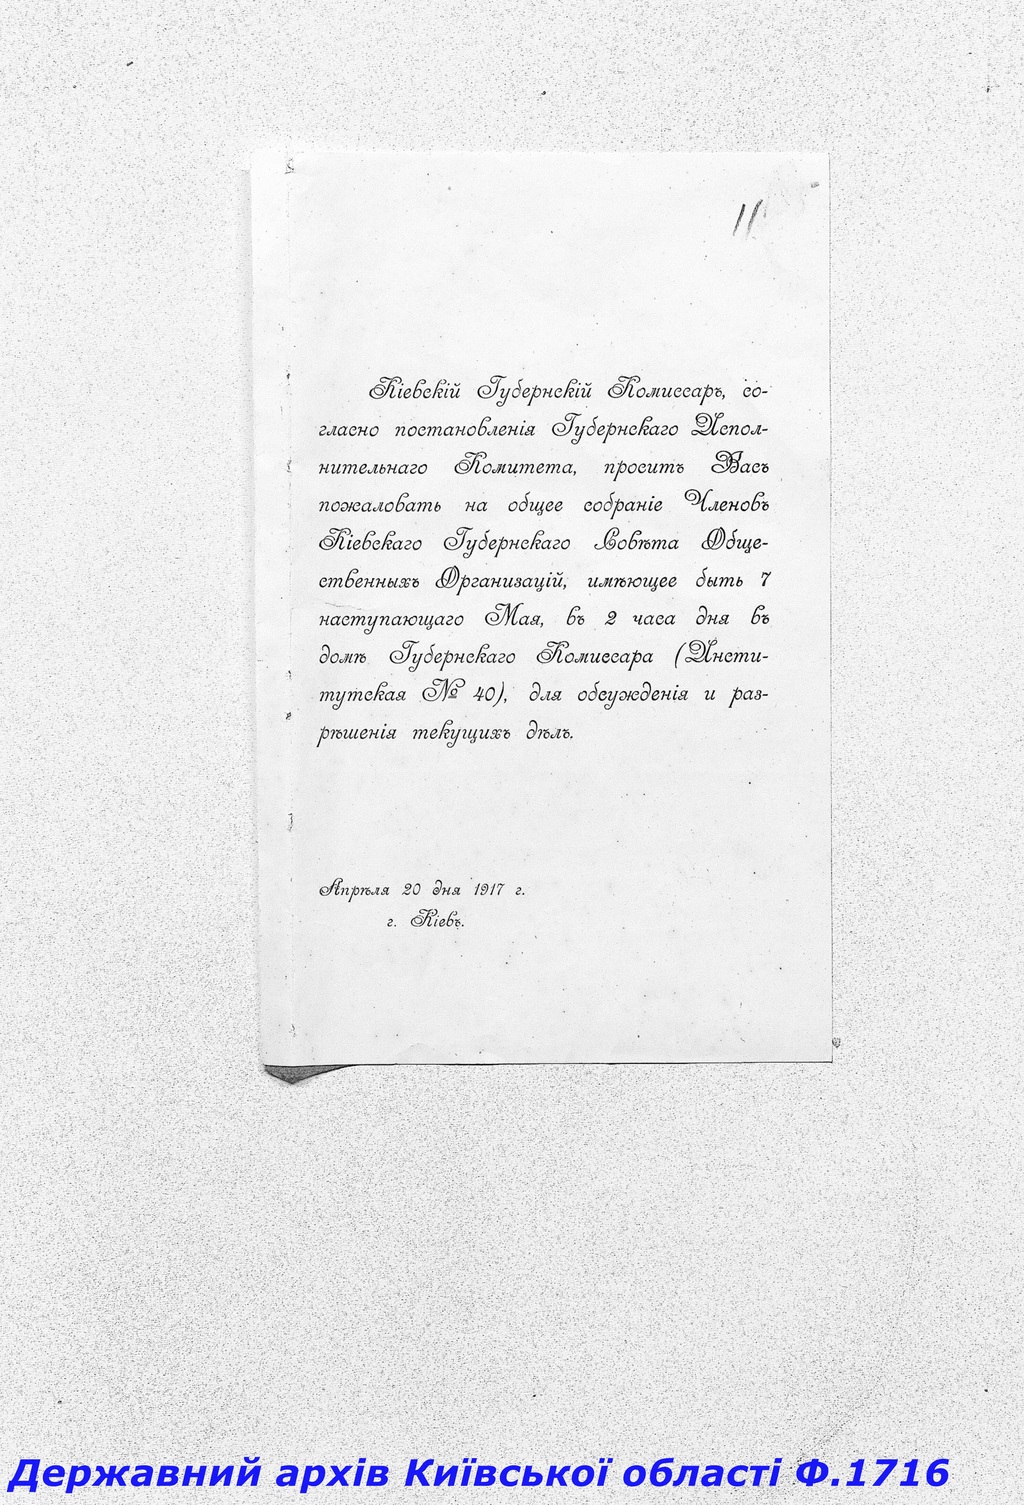 11
Кіевскій Губернскій Комиссаръ, со-
гласно постановленія Губернскаго Испол-
нительнаго Комитета, проситъ Васъ
пожаловать на общее собраніе Членовъ
Кіевскаго Губернскаго Совѣта Обще-
ственныхъ Организацій, имѣющее быть 7
наступающаго Мая, въ 2 часа дня въ
домѣ Губернскаго Комиссара (Инсти-
тутская № 40), для обсужденія и раз-
рѣшенія текущихъ дѣлъ.
Апрѣля 20 дня 1917 г.
г. Кіевъ.
Державний архів Київської області Ф.1716